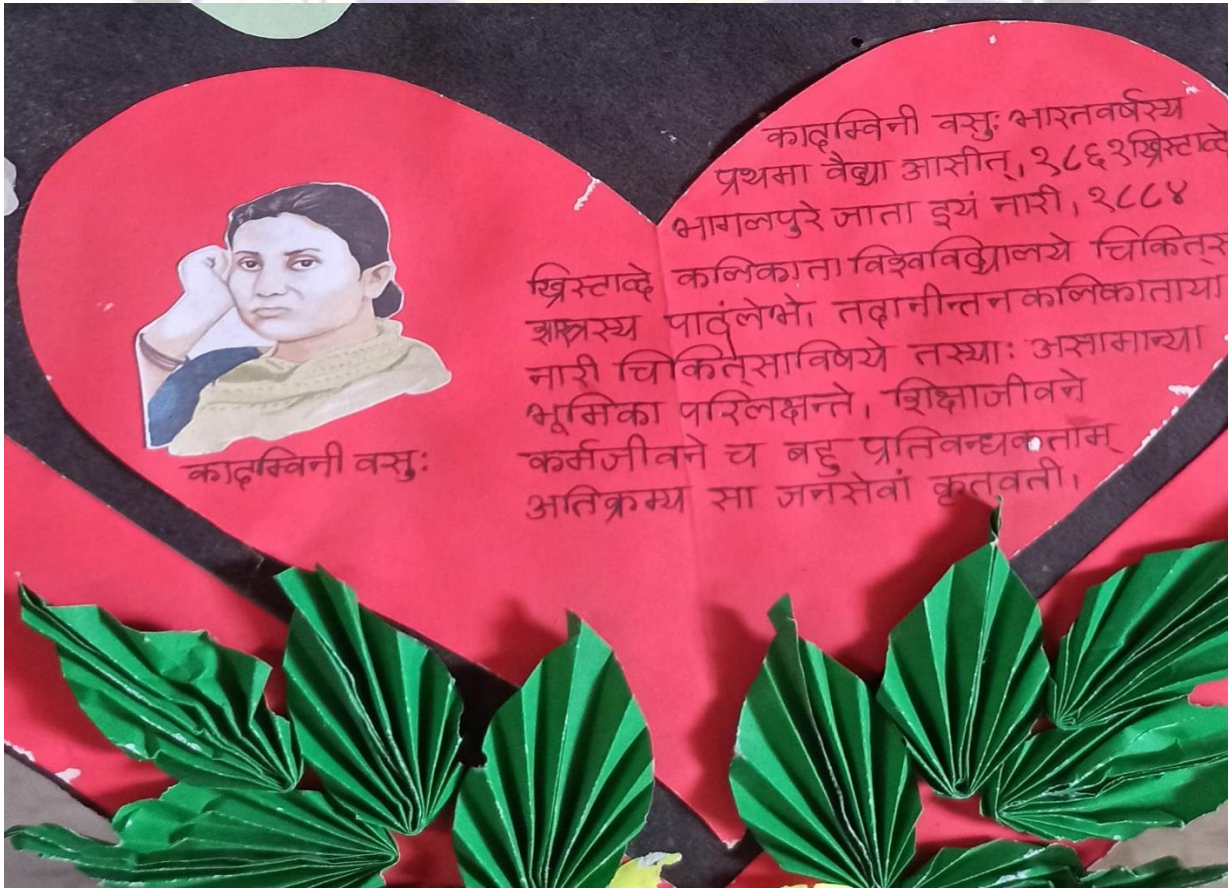 कादम्विनी वसुः
कादम्विनी वसुः भारतवर्षस्य
प्रथमा वैद्या आसीत्, १८६१ख्रिस्टाव्दे
भागलपुरे जाता इयं नारी, १८८४
ख्रिस्टाव्दे कलिकाता विश्वविद्यालये
शास्त्रस्य पाठंलेभे। तदानीन्तनकलिकातायां
नारी चिकित्साविषये तस्याः असामान्या
भूमिका परिलक्षन्ते। शिक्षाजीवने
कर्मजीवने च बहु प्रतिवन्धकताम्
अतिक्रम्य सा जनसेवां कृतवती।